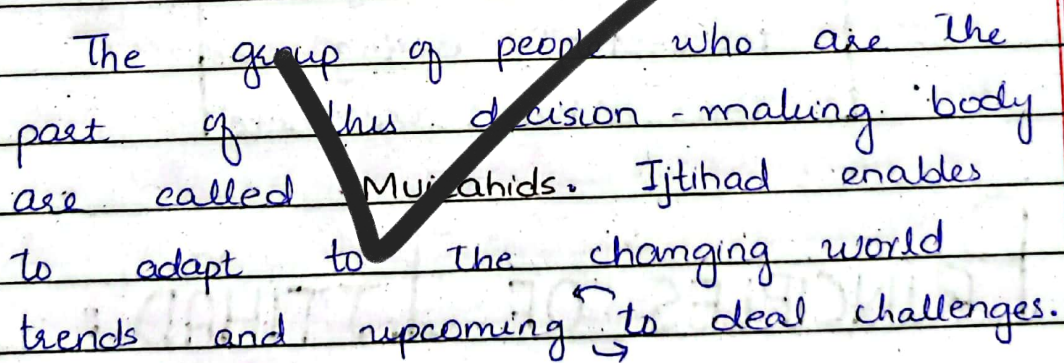 The group of people who are the
part of this decision-making body
are called Mujtahids. Ijtihad enables
to adapt to the changing world
trends and upcoming to deal challenges.